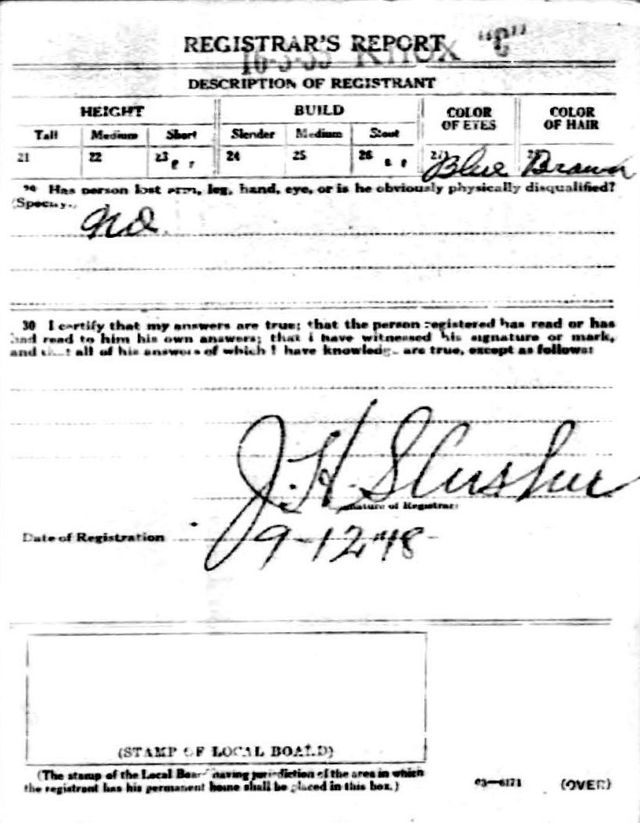 REGISTRAR'S REPORT
16-3-33 Knox "C"
DESCRIPTION OF REGISTRANT
HEIGHT BUILD COLOR OF EYES COLOR OF HAIR
Tall Medium Short Slender Medium Stout
21 22 23 24 25 26 27 Blue Brown
29 Has person lost arm, leg, hand, eye, or is he obviously physically disqualified?
(Specify.)
No
30 I certify that my answers are true; that the person registered has read or has
had read to him his own answers; that I have witnessed his signature or mark,
and that all of his answers of which I have knowledge are true, except as follows:
J. H. Slusher
Signature of Registrar
Date of Registration 9-12-18
(STAMP OF LOCAL BOARD)
(The stamp of the Local Board having jurisdiction of the area in which
the registrant has his permanent home shall be placed in this box.)
03—6171 (OVER)